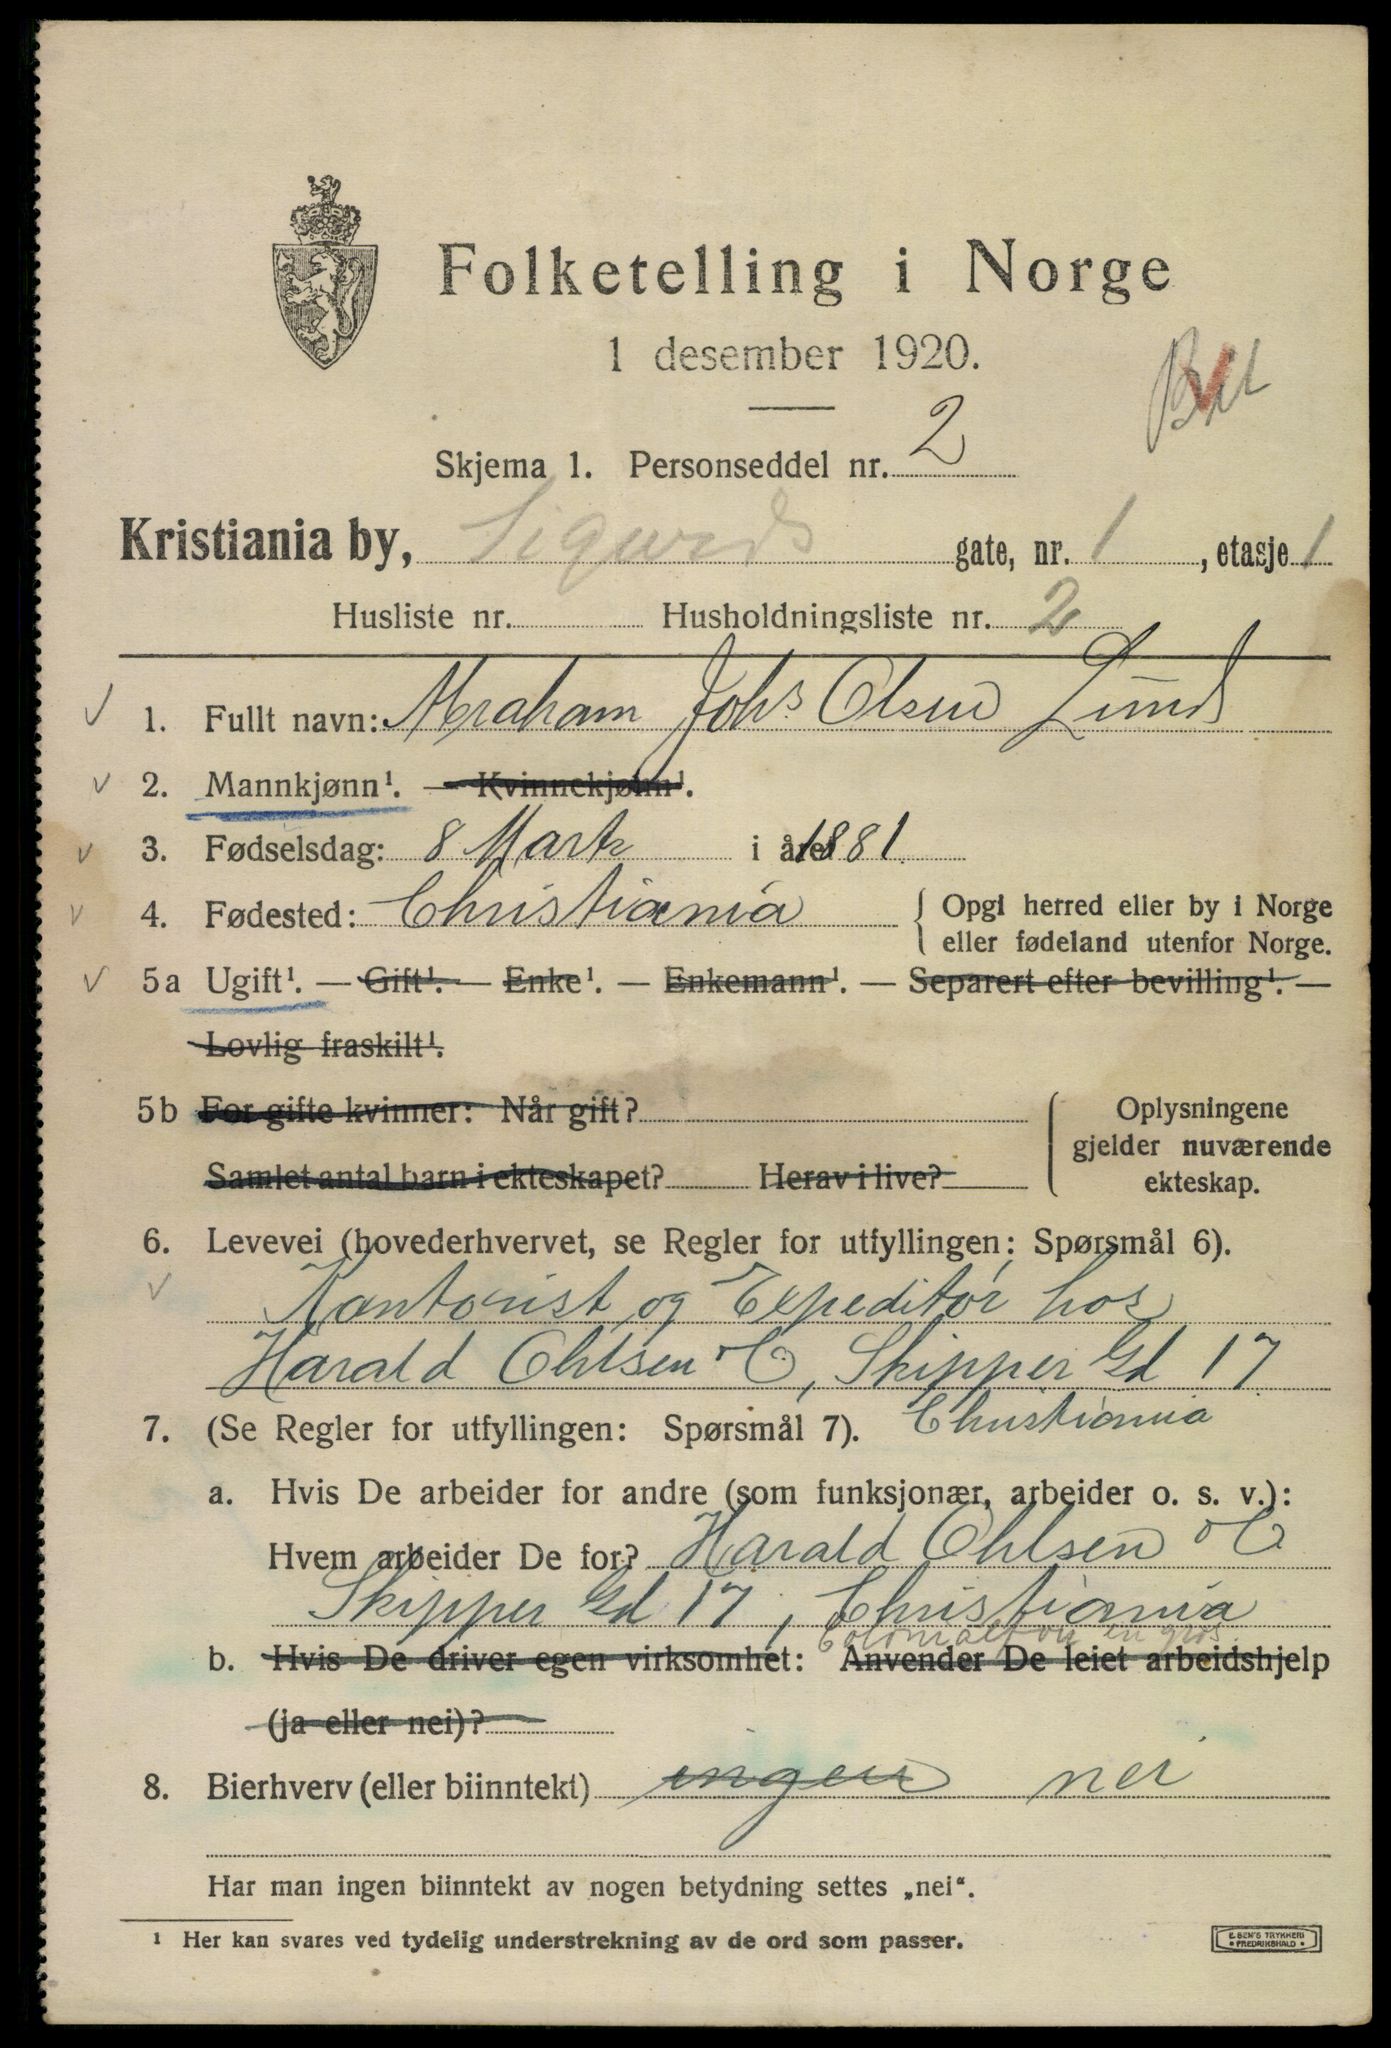 Folketelling i Norge
1 desember 1920.
Skjema 1. Personseddel nr. 2
Kristiania by, Sigurds gate, nr. 1, etasje 1
Husliste nr. Husholdningsliste nr. 2
1. Fullt navn: Abraham Johs Olsen Lund
2. Mannkjønn¹. — Kvinnekjønn¹.
3. Fødselsdag: 8 Marts i året 1881
4. Fødested: Christiania { Opgi herred eller by i Norge
eller fødeland utenfor Norge.
5a Ugift¹. — Gift¹. — Enke¹. — Enkemann¹. — Separert efter bevilling¹. —
Lovlig fraskilt¹.
5b For gifte kvinner: Når gift? { Oplysningene
gjelder nuværende
Samlet antal barn i ekteskapet? Herav i live? ekteskap.
6. Levevei (hovederhvervet, se Regler for utfyllingen: Spørsmål 6).
Kontorist og Expeditør hos
Harald Ohlsen & C, Skipper Gd 17
7. (Se Regler for utfyllingen: Spørsmål 7). Christiania
a. Hvis De arbeider for andre (som funksjonær, arbeider o. s. v.):
Hvem arbeider De for? Harald Ohlsen & C
Skipper Gd 17, Christiania
en gros
b. Hvis De driver egen virksomhet: Anvender De leiet arbeidshjelp
(ja eller nei)?
8. Bierhverv (eller biinntekt) ingen nei
Har man ingen biinntekt av nogen betydning settes „nei“.
¹ Her kan svares ved tydelig understrekning av de ord som passer.
E. SEM'S TRYKKERI
• FREDRIKSHALD •